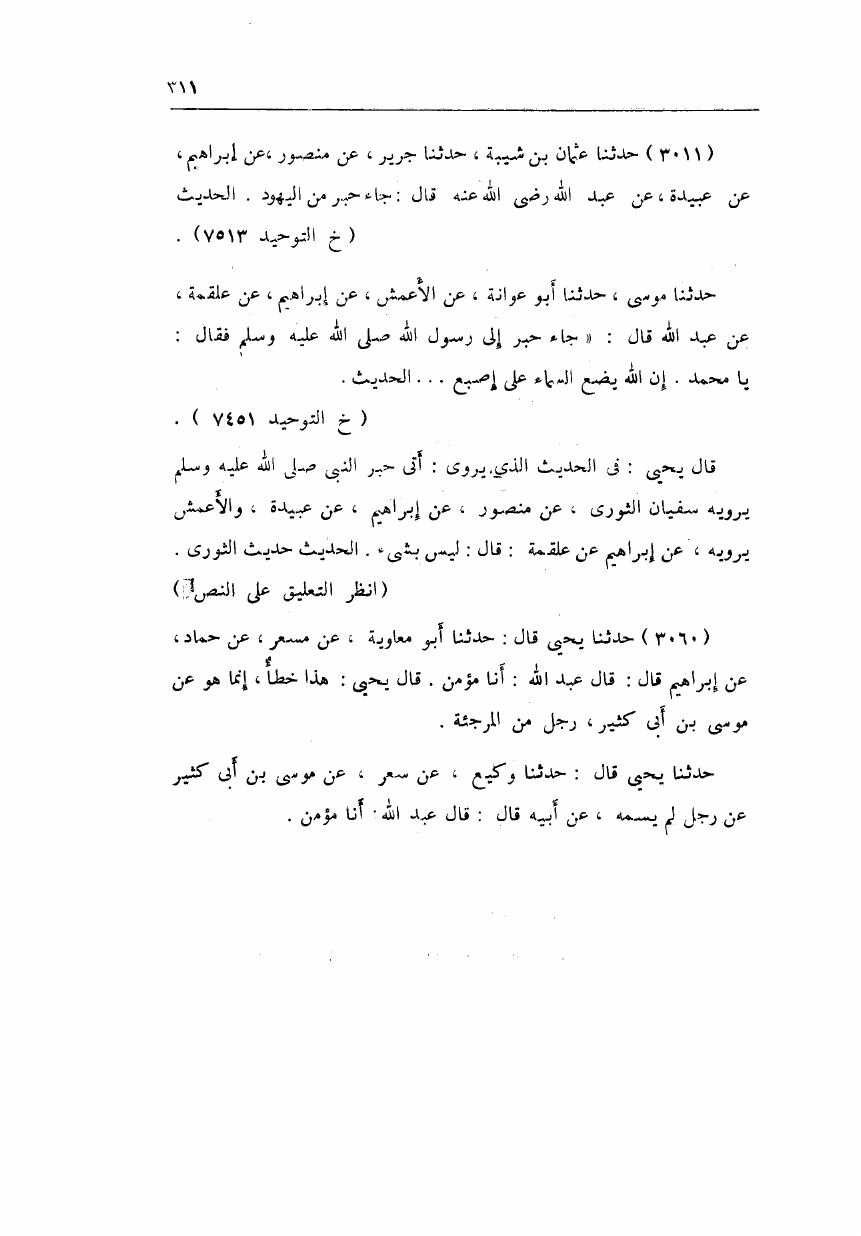 ٣١١
( ٣٠١١ ) حدثنا عثمان بن شيبة ، حدثنا جرير ، عن منصور ،عن إبراهيم ،
عن عبيدة ، عن عبد الله رضى الله عنه قال : جاء حبر من اليهود . الحديث
( خ التوحيد ٧٥١٣ ) .
حدثنا موسى ، حدثنا أبو عوانة ، عن الأعمش ، عن إبراهيم ، عن علقمة ،
عن عبد الله قال : « جاء حبر إلى رسول الله صلى الله عليه وسلم فقال :
يا محمد . إن الله يضع السماء على إصبع ... الحديث .
( خ التوحيد ٧٤٥١ ) .
قال يحيى : فى الحديث الذى يروى : أتى حبر النبى صلى الله عليه وسلم
يرويه سفيان الثورى ، عن منصور ، عن إبراهيم ، عن عبيدة ، والأعمش
يرويه ، عن إبراهيم عن علقمة : قال : ليس بشىء . الحديث حديث الثورى .
(انظر التعليق على النص)
( ٣٠٦٠ ) حدثنا يحيى قال : حدثنا أبو معاوية ، عن مسعر ، عن حماد ،
عن إبراهيم قال : قال عبد الله : أنا مؤمن . قال يحيى : هذا خطأ ، إنما هو عن
موسى بن أبى كثير ، رجل من المرجئة .
حدثنا يحيى قال : حدثنا وكيع ، عن سعر ، عن موسى بن أبى كثير
عن رجل لم يسمه ، عن أبيه قال : قال عبد الله أنا مؤمن .